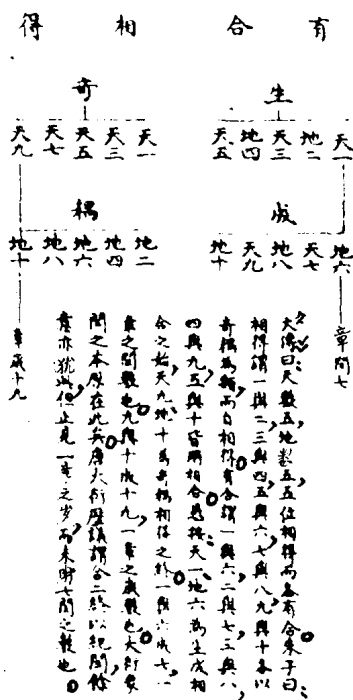 有合相得
生
天一 地二 天三 地四 天五
成
地六 天七 地八 天九 地十
章閏七
奇
天一 天三 天五 天七 天九
耦
地二 地四 地六 地八 地十
章歲十九
大傳曰天數五地數五五位相得而各有合朱子曰
相得謂一與二三與四五與六七與八九與十各以
奇耦為類而自相得有合謂一與六二與七三與八
四與九五與十皆兩相合愚按天一地六為生成相
合之始天九地十為奇耦相得之終一與六成七一
章之閏數也九與十成十九一章之歲數也大衍
閏之本原在此矣唐大衍歷議謂合二終以紀閏餘
意亦猶此但止見一章之歲而未明七閏之數也